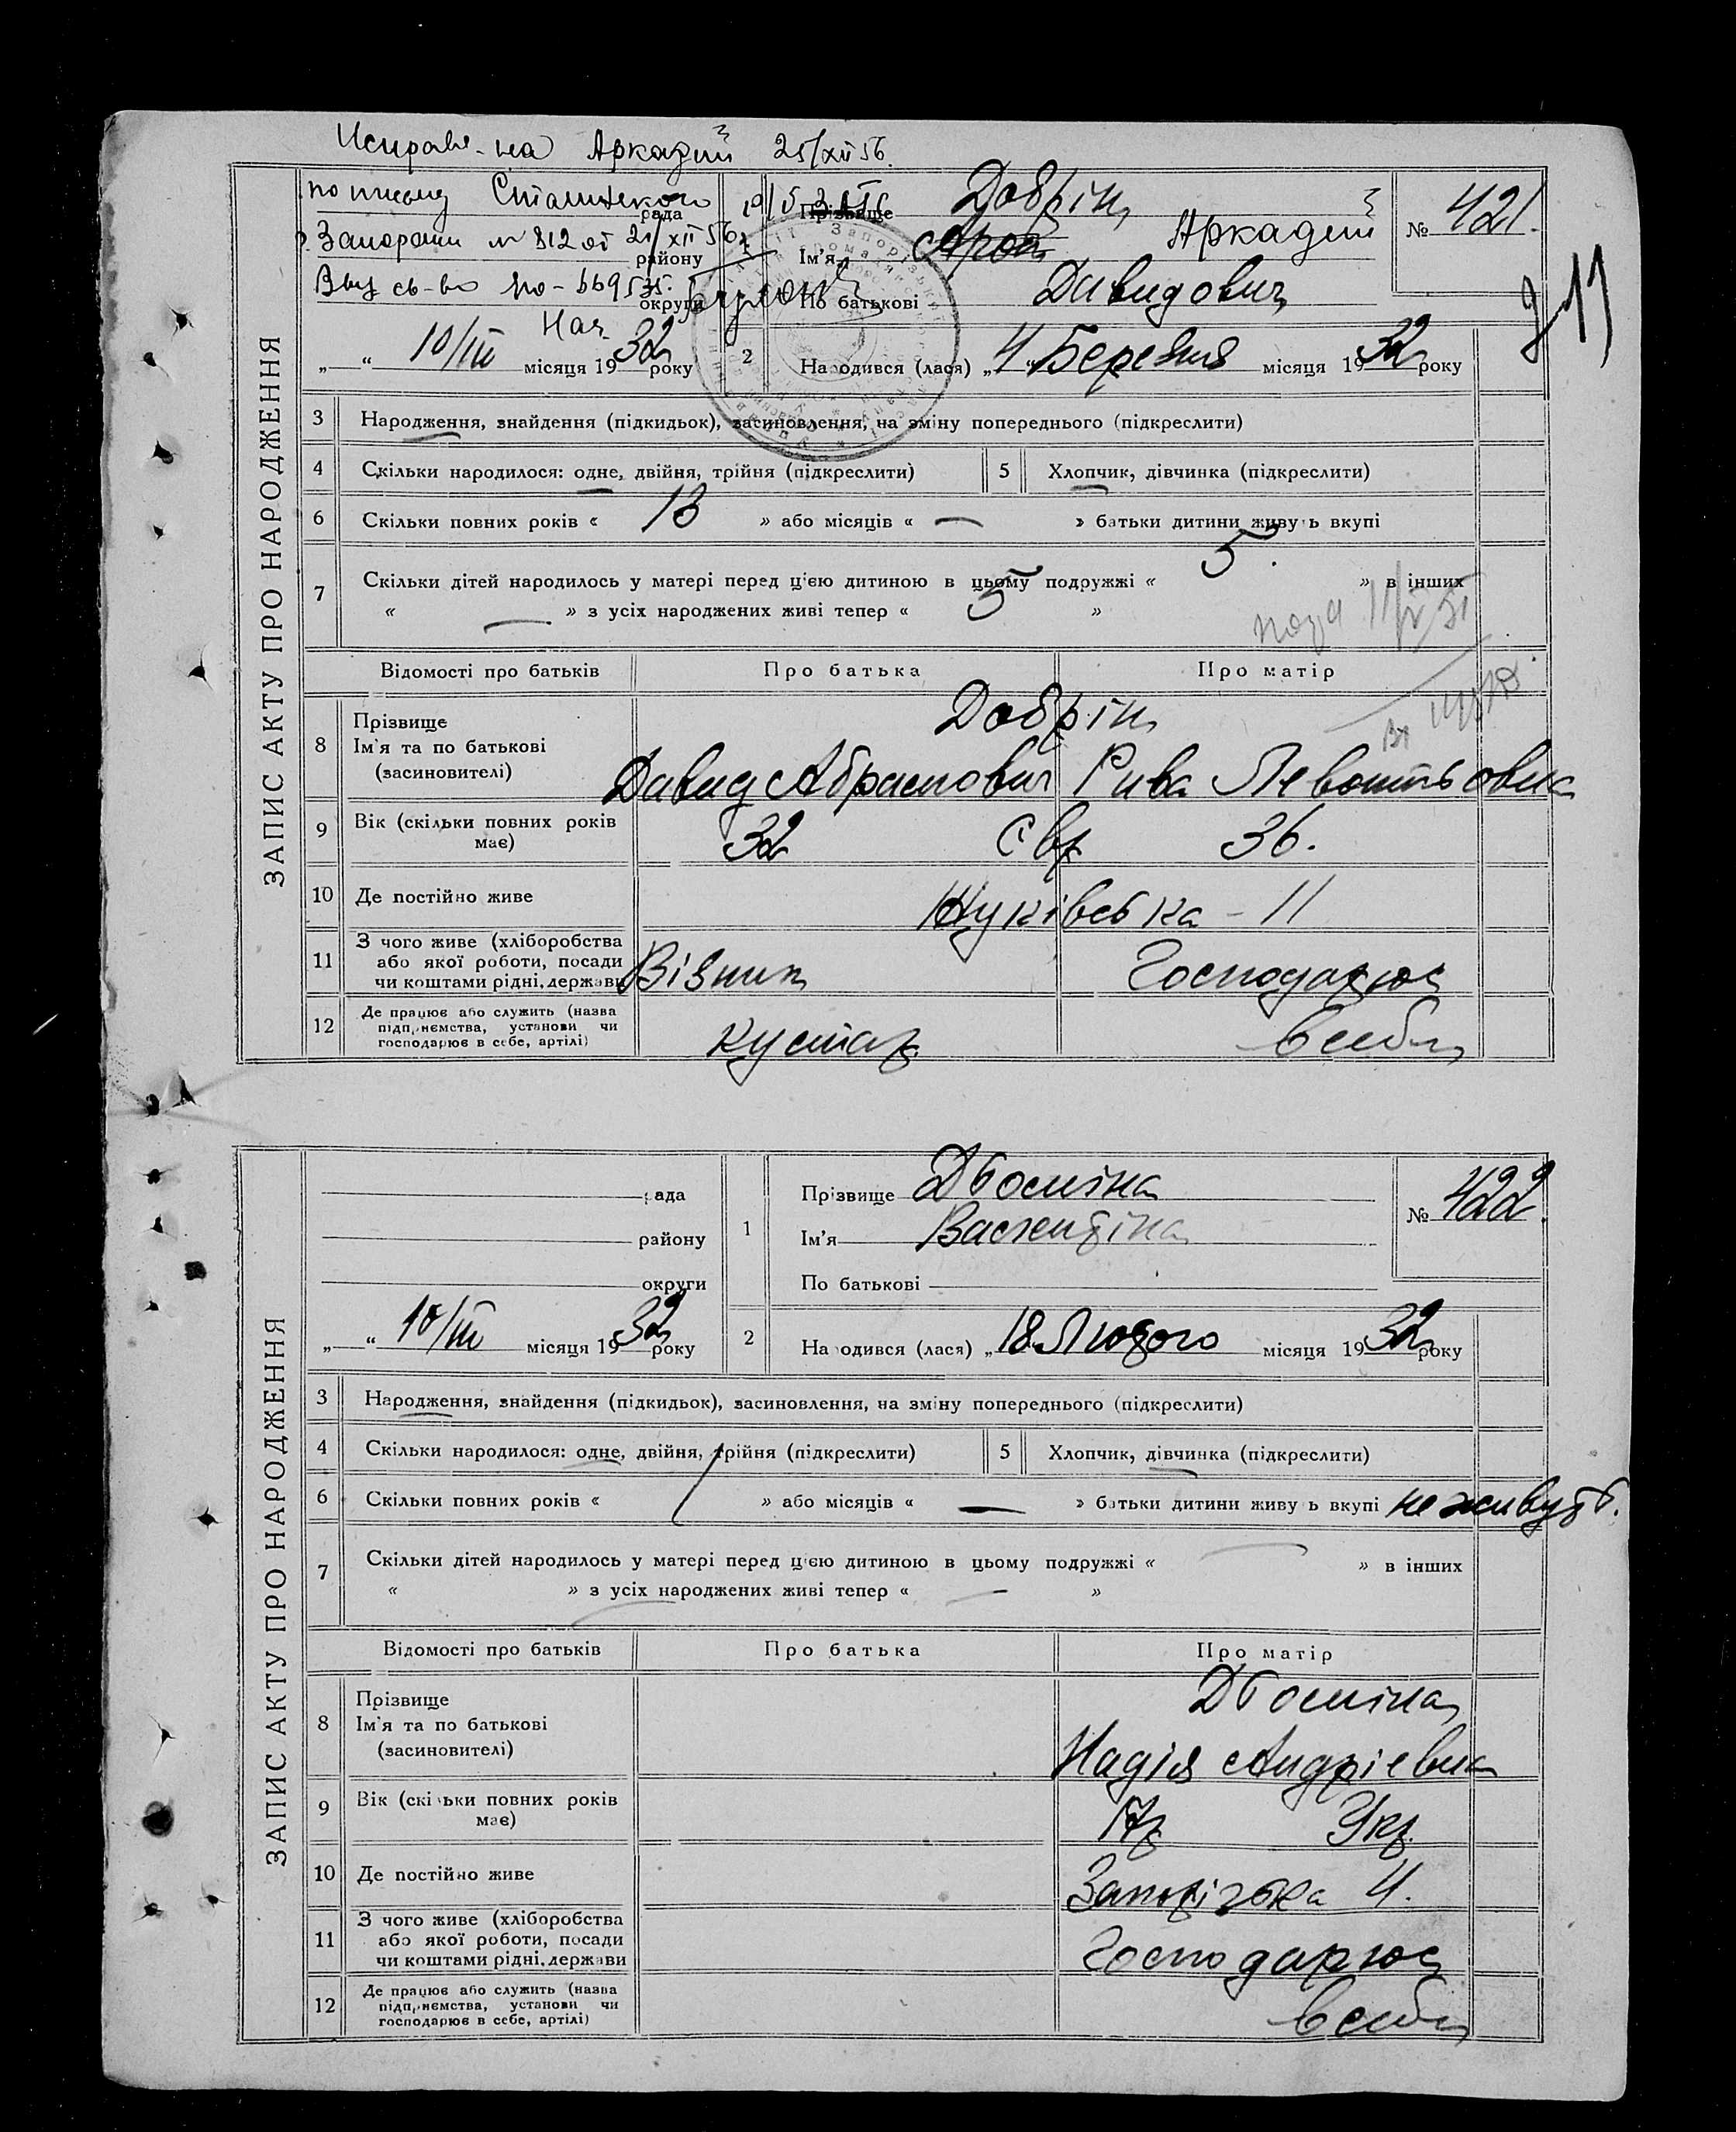 Исправл-на Аркадий 25/XII 56.
по письму Сталинского
рада
г. Запорожья № 812 от 21/XII 56 г.
району
округи
Нач.
„ “ 10/III місяця 1932 року
1 Прізвище Добрін
Ім'я Арон Аркадий
По батькові Давидович
№ 421.
2 Народився (лася) „4“ Березня місяця 1932 року
ЗАПИС АКТУ ПРО НАРОДЖЕННЯ
3 Народження, знайдення (підкидьок), засиновлення, на зміну попереднього (підкреслити)
4 Скільки народилося: одне, двійня, трійня (підкреслити) 5 Хлопчик, дівчинка (підкреслити)
6 Скільки повних років « 13 » або місяців « — » батьки дитини живуть вкупі
7 Скільки дітей народилось у матері перед цією дитиною в цьому подружжі « 5. » в інших
« — » з усіх народжених живі тепер « 5 »
Відомості про батьків Про батька Про матір
8 Прізвище Добрін
Ім'я та по батькові
(засиновителі) Давид Абрамович Рива
9 Вік (скільки повних років має) 32 Євр 36.
10 Де постійно живе - 11
11 З чого живе (хліборобства
або якої роботи, посади
чи коштами рідні, держави Візник Господарює
12 Де працює або служить (назва
підприємства, установи чи
господарює в себе, артілі) кустар в себе
рада
району
округи
„ “ 10/III місяця 1932 року
1 Прізвище Дьоміна
Ім'я Валентіна
По батькові
№ 422.
2 Народився (лася) „18 Лютого місяця 1932 року
ЗАПИС АКТУ ПРО НАРОДЖЕННЯ
3 Народження, знайдення (підкидьок), засиновлення, на зміну попереднього (підкреслити)
4 Скільки народилося: одне, двійня, трійня (підкреслити) 5 Хлопчик, дівчинка (підкреслити)
6 Скільки повних років « » або місяців « — » батьки дитини живуть вкупі не живуть.
7 Скільки дітей народилось у матері перед цією дитиною в цьому подружжі « — » в інших
« — » з усіх народжених живі тепер « — »
Відомості про батьків Про батька Про матір
8 Прізвище Дьоміна
Ім'я та по батькові
(засиновителі) Надія Андрієвна
9 Вік (скільки повних років має) Укр.
10 Де постійно живе Запорізька 4.
11 З чого живе (хліборобства
або якої роботи, посади
чи коштами рідні, держави Господарює
12 Де працює або служить (назва
підприємства, установи чи
господарює в себе, артілі) в себе